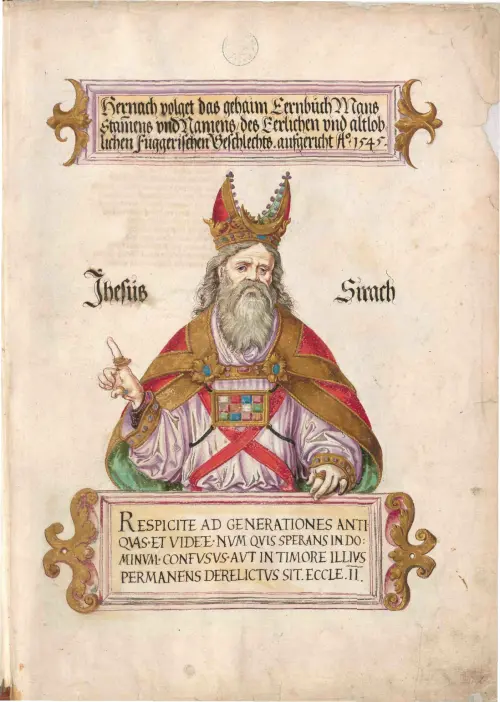 Hernach volget das gehaim Eernbuch Mans
Stam̄ens vnd Namens, des Eerlichen vnd altlob
lichen Fuggerischen Geschlechts. aufgericht A°. 1545.
Jhesüs Sirach
RESPICITE AD GENERATIONES ANTI
QVAS·ET VIDETE·NVM QVIS SPERANS IN DO:
MINVM·CONFVSVS·AVT IN TIMORE ILLIVS
PERMANENS DERELICTVS SIT. ECCLE. II.